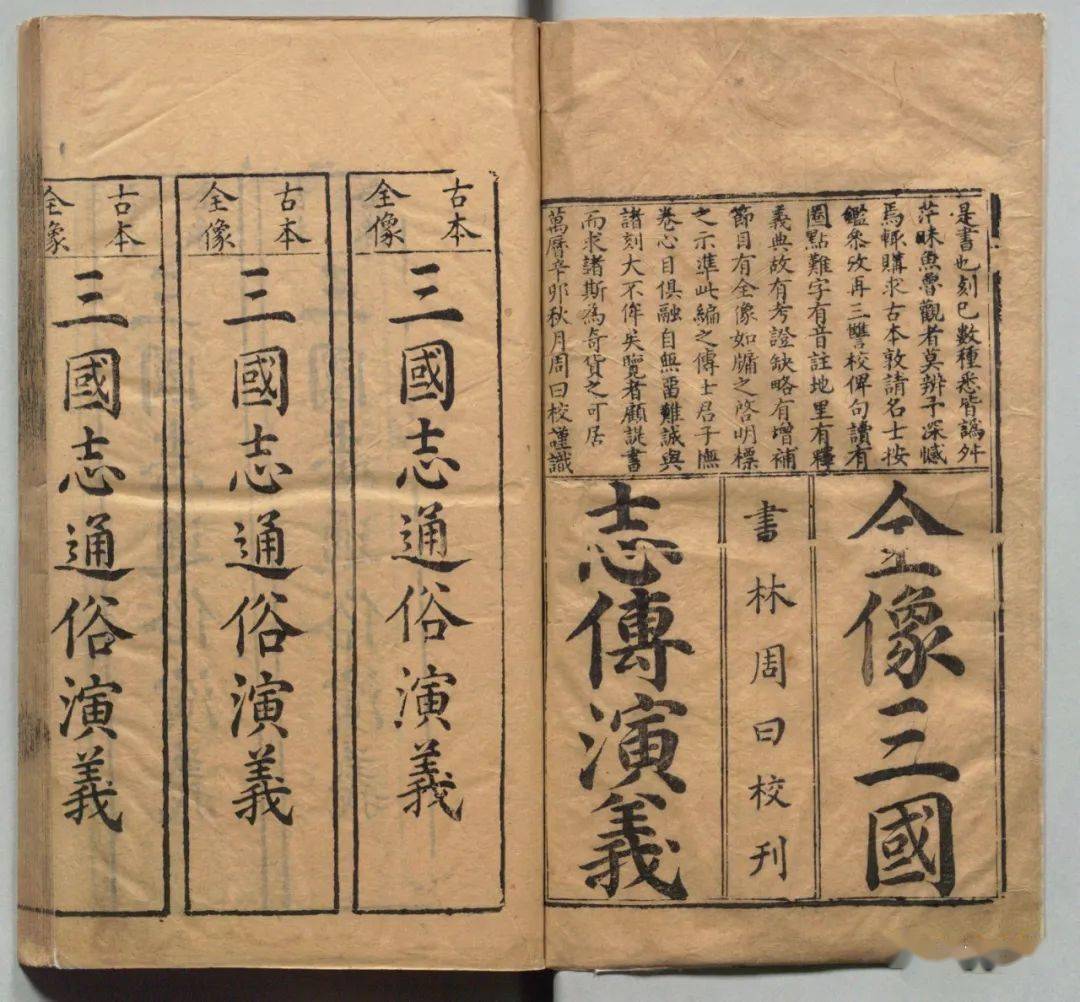 是書也刻已數種悉皆譌舛
茫昧魚魯觀者莫辨予深憾
焉輒購求古本敦請名士按
鑑叅攷再三讐校俾句讀有
圈點難字有音註地里有釋
義典故有考證缺略有增補
節目有全像如牖之啓明標
之示準此編之傳士君子撫
卷心目俱融自無畱難誠與
諸刻大不侔矣覽者顧諟書
而求諸斯為奇貨之可居
萬曆辛卯秋月周曰校謹識
全像三國
書林周曰校刊
志傳演義
古本
全像
三國志通俗演義
古本
全像
三國志通俗演義
古本
全像
三國志通俗演義